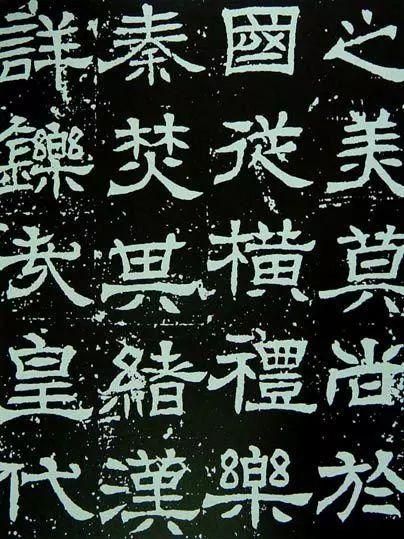 之美莫尚於
國從橫禮樂
秦焚其緒漢
詳鑠考皇代